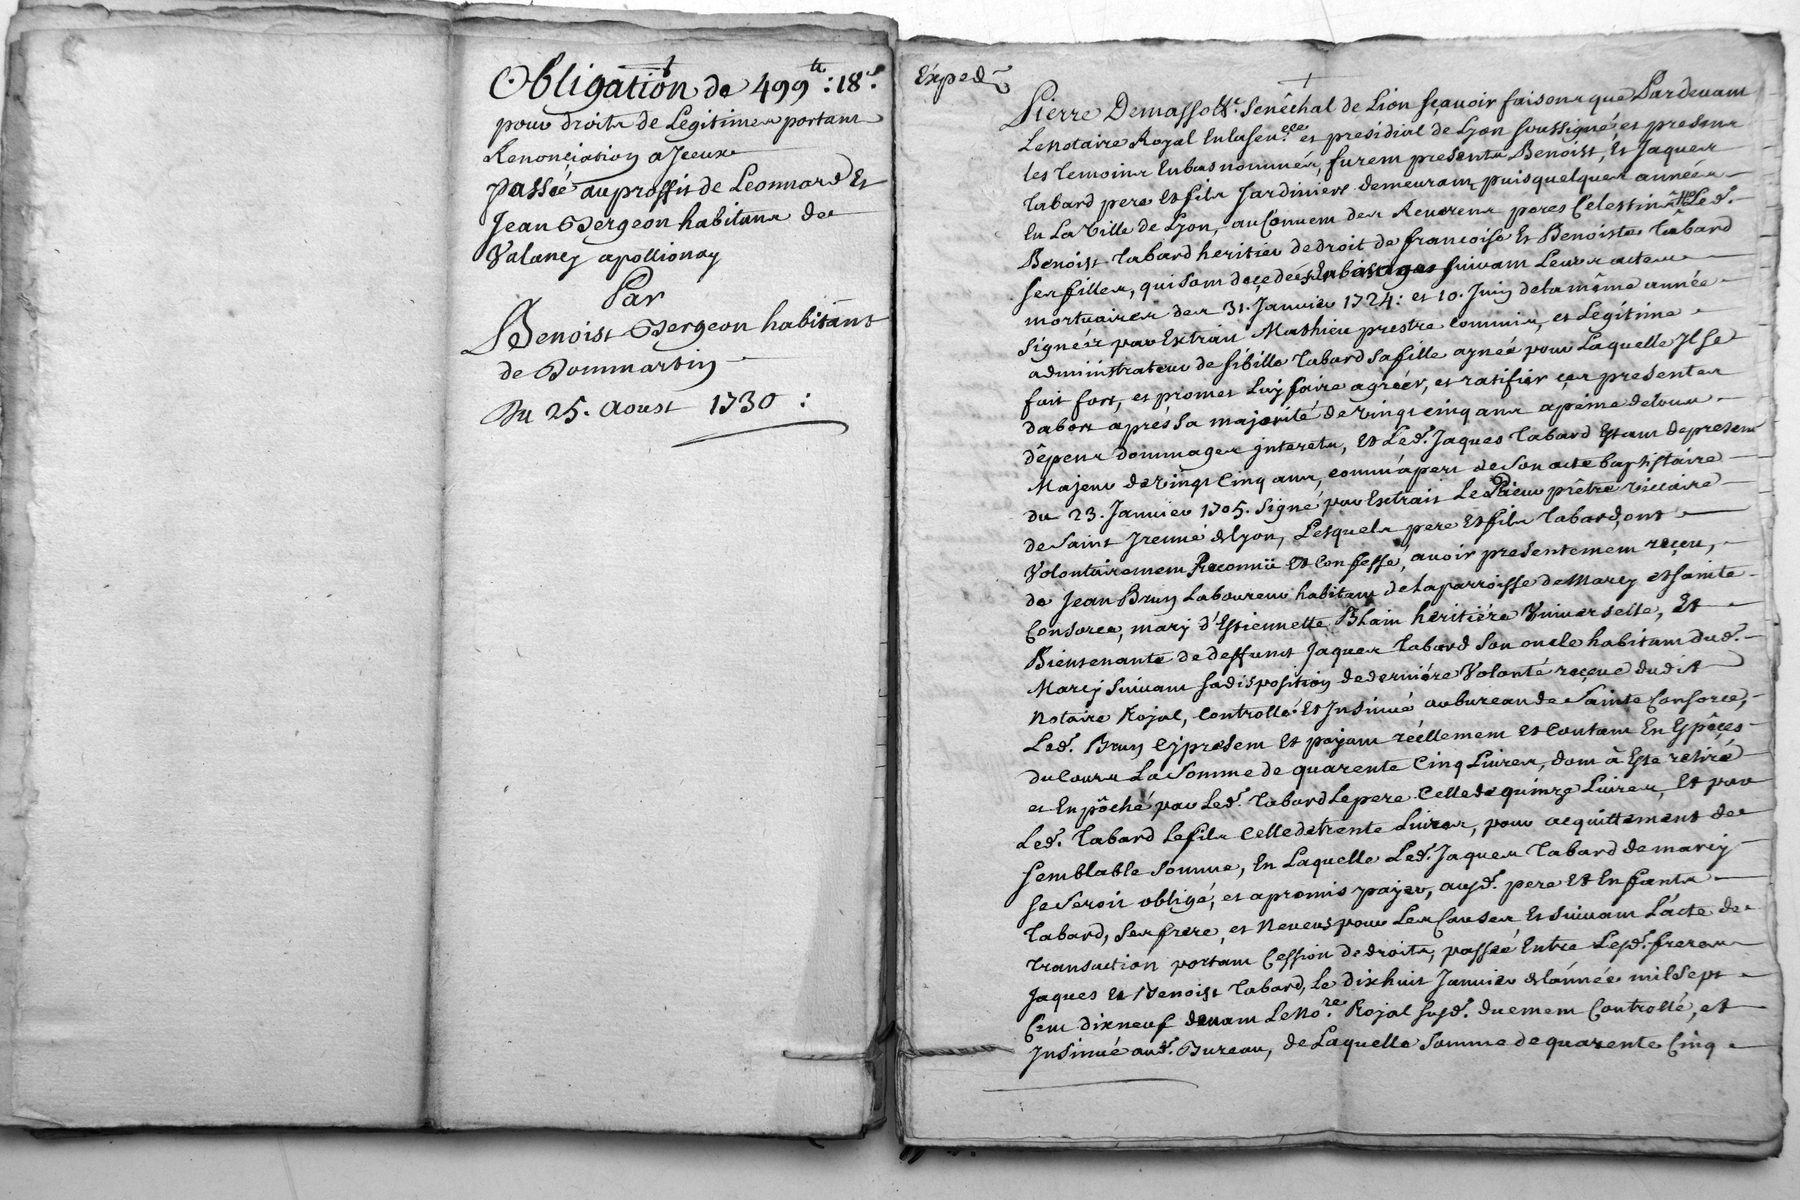 Obligation de 499ᵗᵗ: 18ˢ.
pour droits de Legitimes portant
Renonçiation a Jceux
passéé au proffit de Leonnard Et
Jean Bergeon habitans de
Valancy apollionay
Par
Benoist Bergeon habitant
de Dommartin
Du 25. Aoust 1730 :
Exped
Pierre Demasso &c. Senêchal de Lion sçauoir faisons que Pardeuant
Le Notaire Royal En la Senee. et presidial de Lyon soussigné, et presens
les Temoins Enbas nommés, furent presents Benoist, Et Jaques
Tabard pere Et fils Jardiniers demeurant, puis quelques années
En La Ville de Lyon, au Conuent des Reuerens peres Celestins Led.
Benoist Tabard heritier de droit de francoise Et Benoiste Tabard
ses filles, qui sont deçedées suivant Leurs actes
mortuaires des 31. Januier 1724: et 10. Juin de la même année
Signéis par Extrait Mathieu prestre Commis, et Légitime
administrateur de sibille Tabard sa fille aynéé pour Laquelle Jl se
fait fort, et promet Luy faire agréér, et ratifier ces presentes
dabort aprés sa majorité de vingt cinq ans apeine de tous
dêpens dommages jnterets, Et Led. Jaques Tabard Estant de present
Majeur de vingt Cinq ans, comm'apert de Son acte baptistaire
du 23. Januier 1705. Signé par Extrait Le Rieur prêtre viccaire
de Saint Jrenné de Lyon, Lesquels pere Et fils Tabard, ont
Volontairement Reconnü Et Confessé, auoir presentement reçeu,
de Jean Brun Laboureur habitant de La parroisse de Marcy et Sainte
Consorce, mary d'Estiennette Blain heritiére Vniverselle, Et
Bientenante de deffunct Jaques Tabard Son oncle habitant dud.
Marcy Suiuant sa disposition de derniére Volonté reçeue dudit
Notaire Royal, Controllé Et Jnsinué au bureau de Sainte Consorce,
Led. Brun Cy present Et payant réellement et Contant En Espêçes
du Cours La Somme de quarente Cinq Liures, dont à Esté retiré
et Enpôché par Led. Tabard Le pere Celle de quinze Liures, Et par
Led. Tabard Le fils Celle de trente Liures, pour acquittement de
semblable Somme, En Laquelle Led. Jaques Tabard de marcy
se Seroit obligé, et a promis payer, ausd. pere Et Enfants
Tabard, Ses frere, et Neueus pour Les Causes Et Suiuant L'acte de
Transaction portant Cession de droits, passéé Entre Lesd. freres
Jaques Et Benoist Tabard, Le dixhuit Januier de L'année mil Sept
Cent dix neuf deuant Le No.re Royal Susd. duement Controllé, et
Jnsinué aud. Bureau, de Laquelle Somme de quarente Cinq